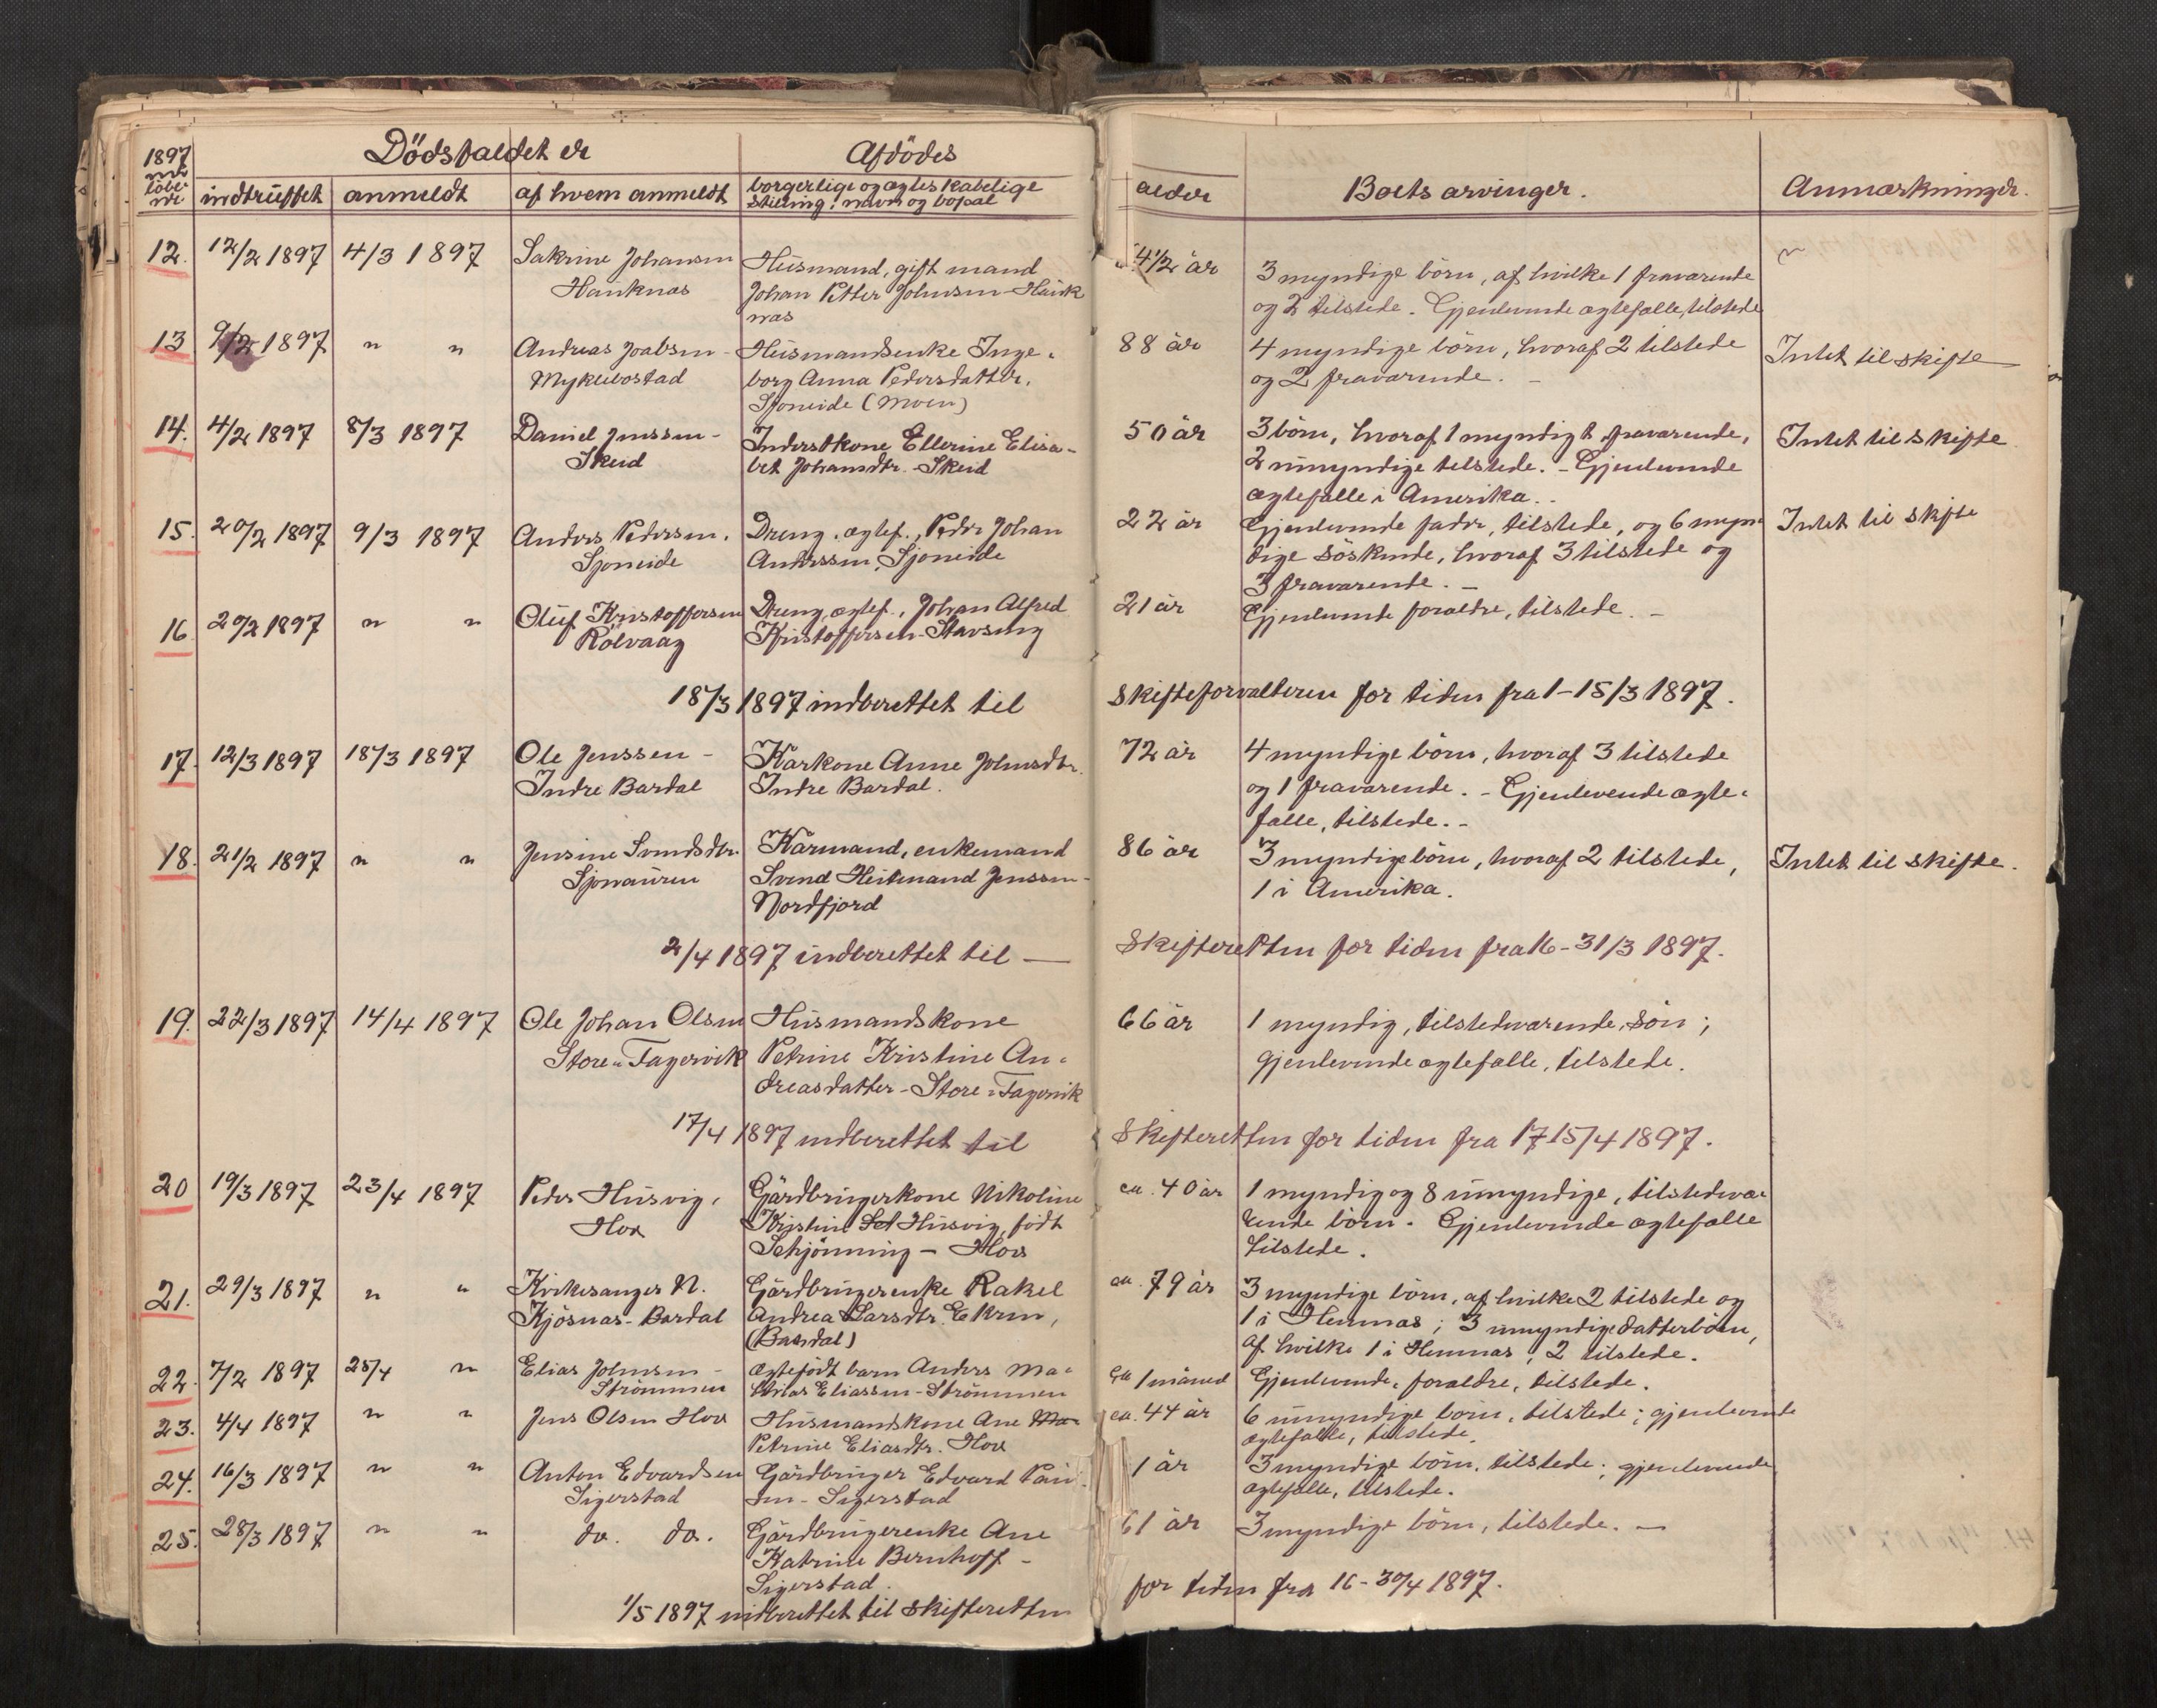 1897
Dödsfaldet er
Afdödes
löbe-
nr
indtruffet
anmeldt
af hvem anmeldt
borgerlige og ægteskabelige
stilling, navn og bopæl
alder
Boets arvinger.
Anmærkninger.
12. 12/2 1897 4/3 1897 Sakrine Johansen Husmand, gift mand 4 1/2 år 3 myndige börn, af hvilke 1 fraværende
Hauknæs Johan Petter Johnsen - Hauk og 2 tilstede. Gjenlevende ægtefælle, tilstede
næs
13 9/2 1897 " " Andreas Joabsen - Husmandsenke Inge- 88 år 4 myndige börn, hvoraf 2 tilstede Intet til skifte
Myklebostad borg Anna Pedersdatter, og 2 fraværende. -
Sjoneide (Moen)
14. 4/2 1897 8/3 1897 Daniel Jenssen - Inderstkone Ellerine Elisa- 50 år 3 börn, hvoraf 1 myndigt, fraværende, Intet til skifte
Skeid bet Johansdtr. - Skeid 2 umyndige tilstede. - Gjenlevende
ægtefælle i Amerika. -
15. 20/2 1897 9/3 1897 Anders Pedersen, Dreng, ægtef., Peder Johan 22 år Gjenlevende fader, tilstede, og 6 myn- Intet til skifte
Sjoneide Anderssen, Sjoneide dige söskende, hvoraf 3 tilstede og
3 fraværende. -
16. 20/2 1897 " " Oluf Kristoffersen Dreng, ægtef., Johan Alfred 21 år Gjenlevende forældre, tilstede. -
Rölvaag Kristoffersen - Stavseng
18/3 1897 indberettet til skifteforvalteren for tiden fra 1-15/3 1897.
17. 12/3 1897 18/3 1897 Ole Jenssen - Kårkone Anne Johnsdtr. 72 år 4 myndige börn, hvoraf 3 tilstede
Indre Bardal Indre Bardal. og 1 fraværende. - Gjenlevende ægte-
fælle, tilstede. -
18. 21/2 1897 " " Jensine Svendsdtr. Kårmand, enkemand 86 år 3 myndige börn, hvoraf 2 tilstede, Intet til skifte.
Sjonauren Svend Heitmand Jenssen - 1 i Amerika.
Nordfjord
2/4 1897 indberettet til — Skifteretten for tiden fra 16-31/3 1897.
19. 22/3 1897 14/4 1897 Ole Johan Olsen Husmandskone 66 år 1 myndig, tilstedværende, sön;
Store-Fagervik Petrine Kristine An- gjenlevende ægtefælle, tilstede.
dreasdatter - Store-Fagervik
17/4 1897 indberettet til Skifteretten for tiden fra 1-15/4 1897.
20 19/3 1897 23/4 1897 Peder Husvig, Gårdbrugerkone Nikoline ca. 40 år 1 myndig og 8 umyndige, tilstedevæ-
Hov Kristine Husvig, födt rende börn. Gjenlevende ægtefælle
Schjönning - Hov tilstede.
21. 29/3 1897 " " Kirkesanger N. Gårdbrugerenke Rakel ca. 79 år 3 myndige börn, af hvilke 2 tilstede og
Kjösnæs - Bardal Andrea Larsdtr. Ekren, 1 i Hemnæs; 3 umyndige datterbörn,
(Bardal) af hvilke 1 i Hemnæs, 2 tilstede.
22. 7/2 1897 28/4 " Elias Johnsen - Ægtefödt barn Anders Ma- ca 1 måned Gjenlevende, forældre, tilstede.
Strömmen thias Eliassen - Strömmen
23. 4/4 1897 " " Jens Olsen Hov Husmandskone Ane ca. 44 år 6 umyndige börn, tilstede; gjenlevende
Petrine Eliasdtr. Hov ægtefælle, tilstede.
24. 16/3 1897 " " Anton Edvardsen Gårdbruger Edvard Paul- 1 år 3 myndige börn, tilstede; gjenlevende
Sigerstad sen - Sigerstad ægtefælle, tilstede.
25. 28/3 1897 " " do. do. Gårdbrugerenke Ane 61 år 3 myndige börn, tilstede. —
Katrine Bernhoff -
Sigerstad.
1/5 1897 indberettet til skifteretten for tiden fra 16-30/4 1897.